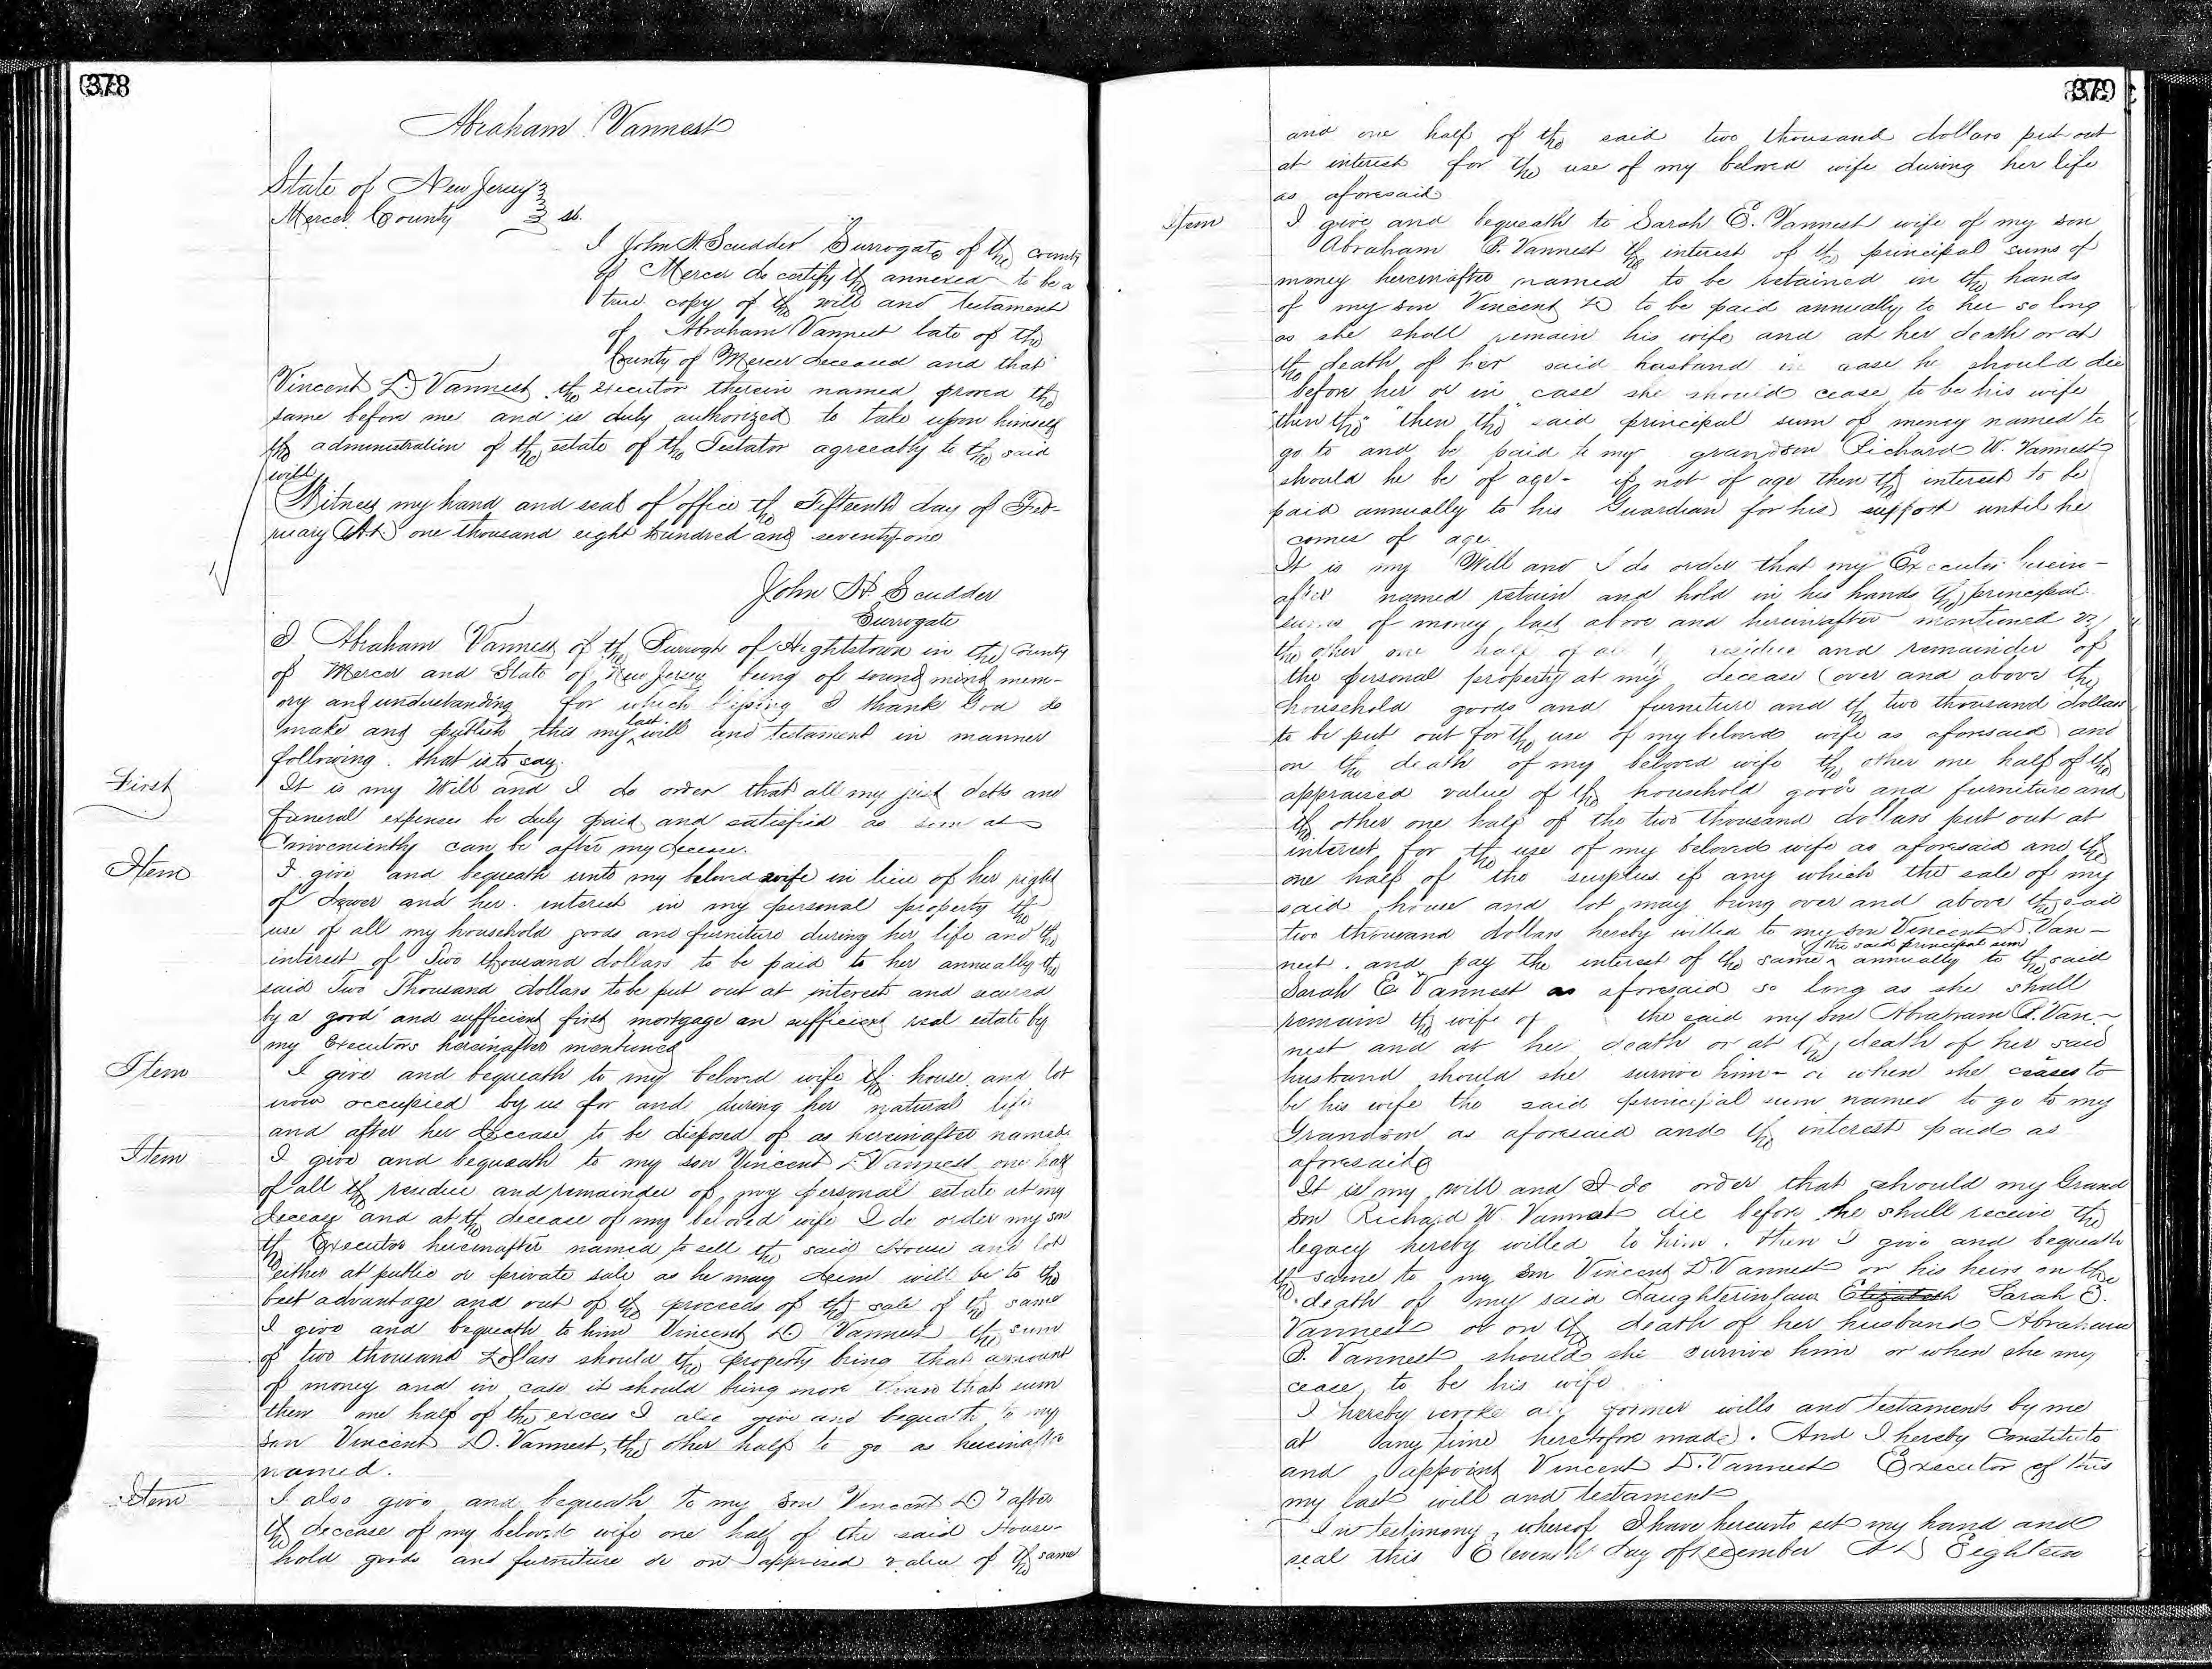 378
Abraham Vannest
State of New Jersey
Mercer County ss.
I John H. Scudder Surrogate of the County
of Mercer do certify the annexed to be a
true copy of the will and testament
of Abraham Vannest late of the
County of Mercer deceased and that
Vincent D. Vannest the executor therein named proved the
same before me and is duly authorized to take upon himself
the administration of the estate of the Testator agreeably to the said
will
Witness my hand and seal of office the Fifteenth day of Feb-
ruary A.D. one thousand eight hundred and seventy-one
John H. Scudder
Surrogate
I Abraham Vannest of the Burrogh of Hightstown in the County
of Mercer and State of New Jersey being of sound mind mem-
ory and understanding for which I thank God do
make and publish this my last will and testament in manner
following. that is to say.
First It is my Will and I do order that all my just debts and
funeral expenses be duly paid and satisfied as soon as
Conveniently can be after my decease.
Item I give and bequeath unto my beloved wife in lieu of her right
of dower and her interest in my personal property the
use of all my household goods and furniture during her life and the
interest of Two thousand dollars to be paid to her annually the
said Two Thousand dollars to be put out at interest and secured
by a good and sufficient first mortgage on sufficient real estate by
my Executors hereinafter mentioned
Item I give and bequeath to my beloved wife the house and lot
now occupied by us for and during her natural life
and after her decease to be disposed of as hereinafter named.
Item I give and bequeath to my son Vincent D Vannest one half
of all the residue and remainder of my personal estate at my
decease and at the decease of my beloved wife I do order my son
the Executor hereinafter named to sell the said House and lot
either at public or private sale as he may deem will be to the
best advantage and out of the proceeds of the sale of the same
I give and bequeath to him Vincent D Vannest the sum
of two thousand Dollars should the property bring that amount
of money and in case it should bring more than that sum
then one half of the excess I also give and bequeath to my
son Vincent D. Vannest, the other half to go as hereinafter
named.
Item I also give and bequeath to my son Vincent D after
the decease of my beloved wife one half of the said House-
hold goods and furniture or on appraised value of the same
379
and one half of the said two thousand dollars put out
at interest for the use of my beloved wife during her life
as aforesaid
Item I give and bequeath to Sarah E. Vannest wife of my son
Abraham P. Vannest the interest of the principal sums of
money hereinafter named to be retained in the hands
of my son Vincent D to be paid annually to her so long
as she shall remain his wife and at her death or at
the death of her said husband in case he should die
before her or in case she should cease to be his wife
"then the" "then the" said principal sum of money named to
go to and be paid to my grandson Richard W. Vannest
should he be of age - if not of age then the interest to be
paid annually to his Guardian for his support until he
comes of age.
It is my Will and I do order that my Executor herein-
after named retain and hold in his hands the principal
sums of money last above and hereinafter mentioned viz
the other one half of all the residue and remainder of
the personal property at my decease (over and above the
household goods and furniture and the two thousand dollars
to be put out for the use of my beloved wife as aforesaid) and
on the death of my beloved wife the other one half of the
appraised value of the household goods and furniture and
the other one half of the two thousand dollars put out at
interest for the use of my beloved wife as aforesaid and the
one half of the surplus if any which the sale of my
said house and lot may bring over and above the said
two thousand dollars hereby willed to my son Vincent D. Van-
nest. and pay the interest of the same of the said principal sum annually to the said
Sarah E Vannest as aforesaid so long as she shall
remain the wife of the said my son Abraham P. Van-
nest and at her death or at the death of her said
husband should she survive him - or when she ceases to
be his wife the said principal sum named to go to my
Grandson as aforesaid and the interest paid as
aforesaid
It is my will and I do order that should my Grand
son Richard W. Vannest die before he shall receive the
legacy hereby willed to him. then I give and bequeath
the same to my son Vincent D. Vannest or his heirs on the
death of my said daughterinlaw Elizabeth Sarah E.
Vannest or on the death of her husband Abraham
P. Vannest should she survive him or when she my
cease to be his wife
I hereby revoke all former wills and testaments by me
at any time heretofore made. And I hereby Constitute
and appoint Vincent D. Vannest Executor of this
my last will and testament
In testimony whereof I have hereunto set my hand and
seal this Eleventh day of December A D Eighteen